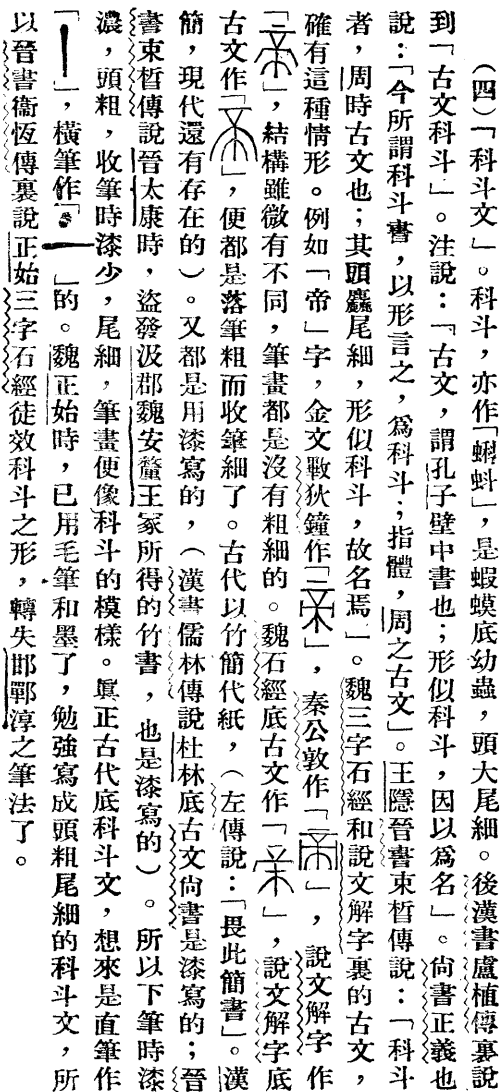 （四）「科斗文」。科斗，亦作「蝌蚪」，是蝦蟆底幼蟲，頭大尾細。後漢書盧植傳裏說
到「古文科斗」。注說：「古文，謂孔子壁中書也；形似科斗，因以爲名」。尙書正義也
說：「今所謂科斗書，以形言之，爲科斗；指體，周之古文」。王隱晉書束晳傳說：「科斗
者，周時古文也；其頭麤尾細，形似科斗，故名焉」。魏三字石經和說文解字裏的古文，
確有這種情形。例如「帝」字，金文㪤狄鐘作「」，秦公敦作「」，說文解字作
「」，結構雖微有不同，筆畫都是沒有粗細的。魏石經底古文作「」，說文解字底
古文作「」，便都是落筆粗而收筆細了。古代以竹簡代紙，（左傳說：「畏此簡書」。漢
簡，現代還有存在的）。又都是用漆寫的，（漢書儒林傳說杜林底古文尙書是漆寫的；晉
書束晳傳說晉太康時，盜發汲郡魏安釐王冢所得的竹書，也是漆寫的）。所以下筆時漆
濃，頭粗，收筆時漆少，尾細，筆畫便像科斗的模樣。眞正古代底科斗文，想來是直筆作
「」，橫筆作「」的。魏正始時，已用毛筆和墨了，勉強寫成頭粗尾細的科斗文，所
以晉書衞恆傳裏說正始三字石經徒效科斗之形，轉失邯鄲淳之筆法了。